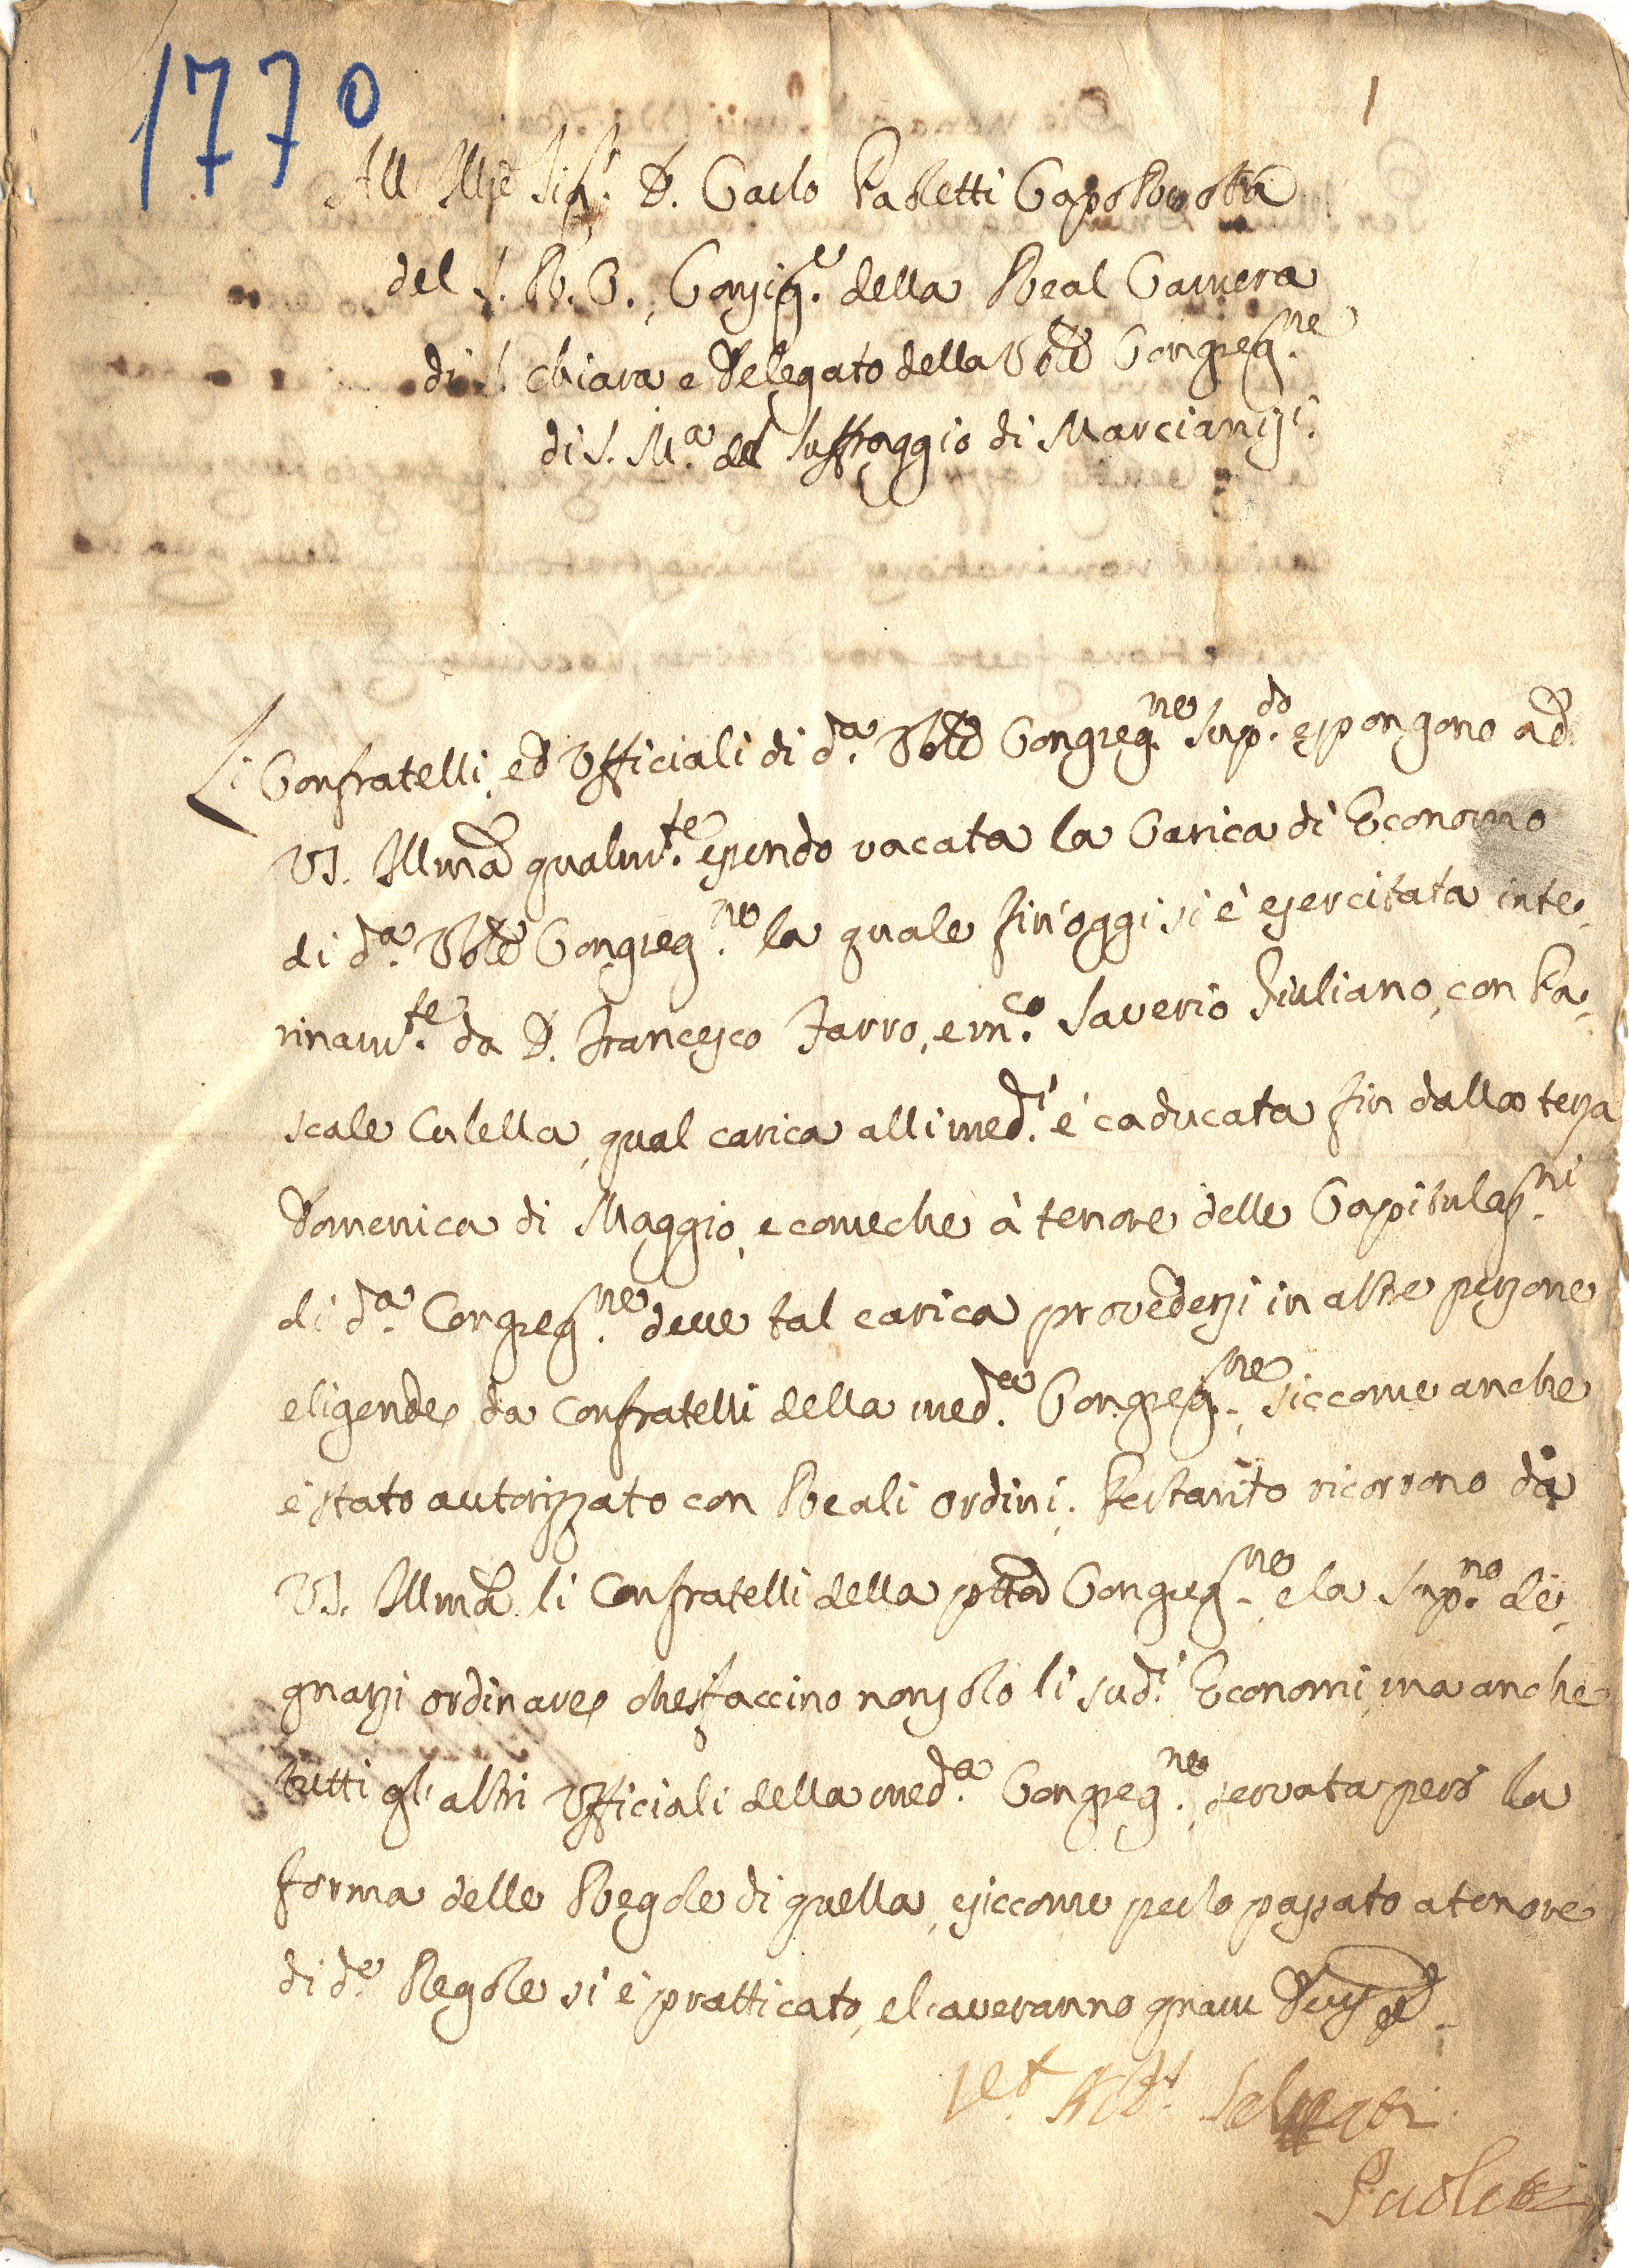 1770
1
All' Ill.e Sig.r D. Carlo Paoletti Capo Ruota
del S. R. C., Consig.e della Real Camera
di S. Chiara e Delegato della Ven.le Congreg.ne
di S. M.a del Suffraggio di Marcianisi.
Li Confratelli, ed Ufficiali di d.a Ven.le Congreg.ne sup.do espongono ad
V.S. Ill.ma qualm.te essendo vacata la Carica di Economo
di d.a Ven.le Congreg.ne la quale fin'oggi si è esercitata inte-
rinam.te da D. Francesco Tarro, e m.co Saverio Giuliano, con Pa-
scale Culella, qual carica alli med.i è caducata fin dalla terza
Domenica di Maggio, e comeche à tenore delle Capitulaz.ni
di d.a Congreg.ne deve tal carica provedersi in altre persone
eligende da Confratelli della med.a Congreg.ne, siccome anche
è stato autorizzato con Reali ordini. Pertanto ricorrono da
V.S. Ill.ma li Confratelli della p.tta Congreg.ne, e la sup.no de-
gnarsi ordinare, che si faccino non solo li sud.i Economi, ma anche
tutti gl'altri Ufficiali della med.a Congreg.ne, servata però la
forma delle Regole di quella, e siccome per lo passato a tenore
di d.e Regole si è pratticato, e l'averanno a grazia ut Deus
Paoletti